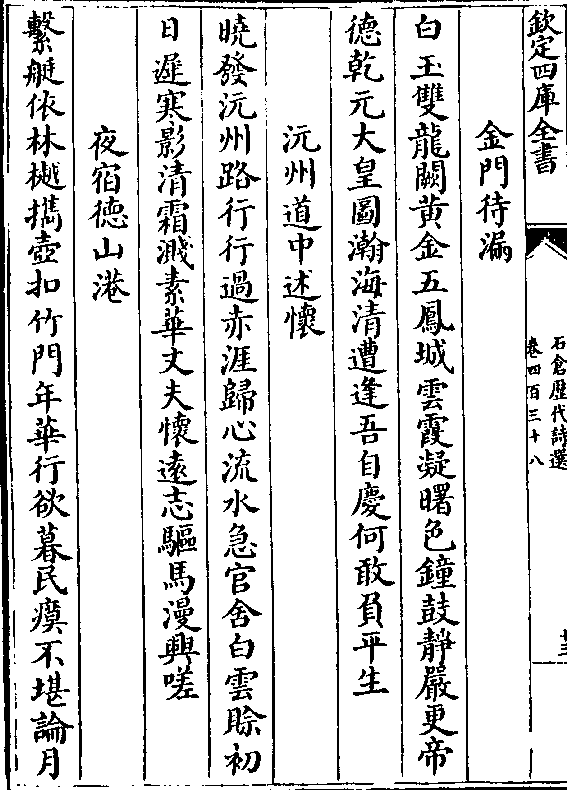 欽定四庫全書
石倉歴代詩選
卷四百三十八
金門待漏
白玉雙龍闕黄金五鳳城雲霞凝曙色鐘鼓静嚴更帝
德乾元大皇圖瀚海清遭逢吾自慶何敢負平生
沅州道中述懷
曉發沅州路行行過赤涯歸心流水急官舍白雲賒初
日遲寒影清霜濺素華丈夫懷遠志驅馬漫興嗟
夜宿德山港
繫艇依林樾攜壺扣竹門年華行欲暮民瘼不堪論月